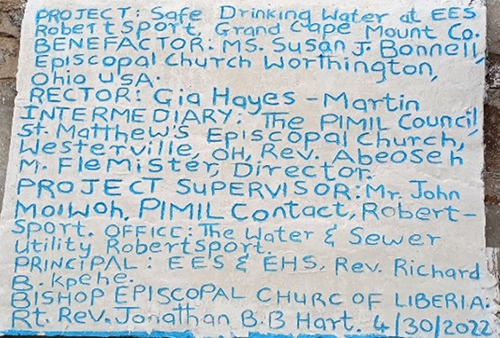 PROJECT: Safe Drinking Water at EES
Robertsport, Grand Cape Mount Co.
BENEFACTOR: MS. Susan J. Bonnell,
Episcopal Church Worthington,
Ohio USA.
RECTOR: Gia Hayes - Martin
INTERMEDIARY: The PIMIL Council,
St. Matthew's Episcopal Church,
Westerville, OH, Rev. Abeoseh
M. Flemister, Director.
PROJECT SUPERVISOR: Mr. John
Moiwoh, PIMIL Contact, Robert-
sport. OFFICE: The Water & Sewer
Utility Robertsport.
PRINCIPAL: EES & EHS, Rev. Richard
B. Kpehe.
BISHOP EPISCOPAL CHURC OF LIBERIA:
Rt. Rev. Jonathan B.B Hart. 4/30/2022